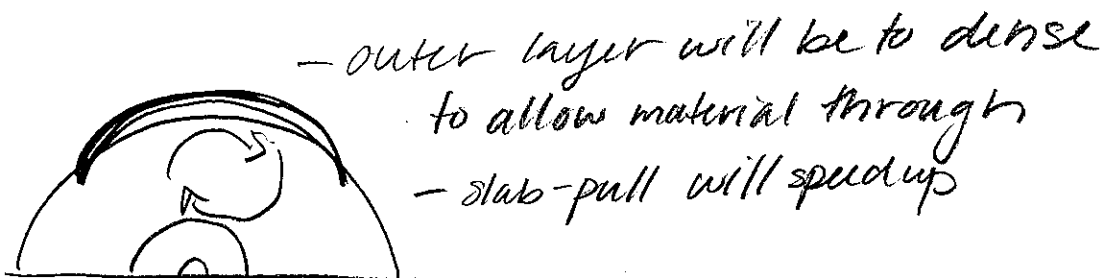 - outer layer will be to dense
to allow material through
- slab-pull will speed up